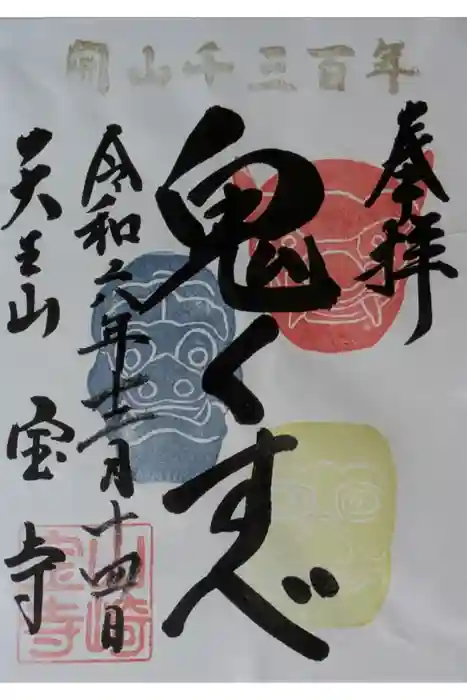 開山千三百年
奉拝
鬼くすべ
令和六年十二月十四日
天王山 宝寺
山崎
宝寺